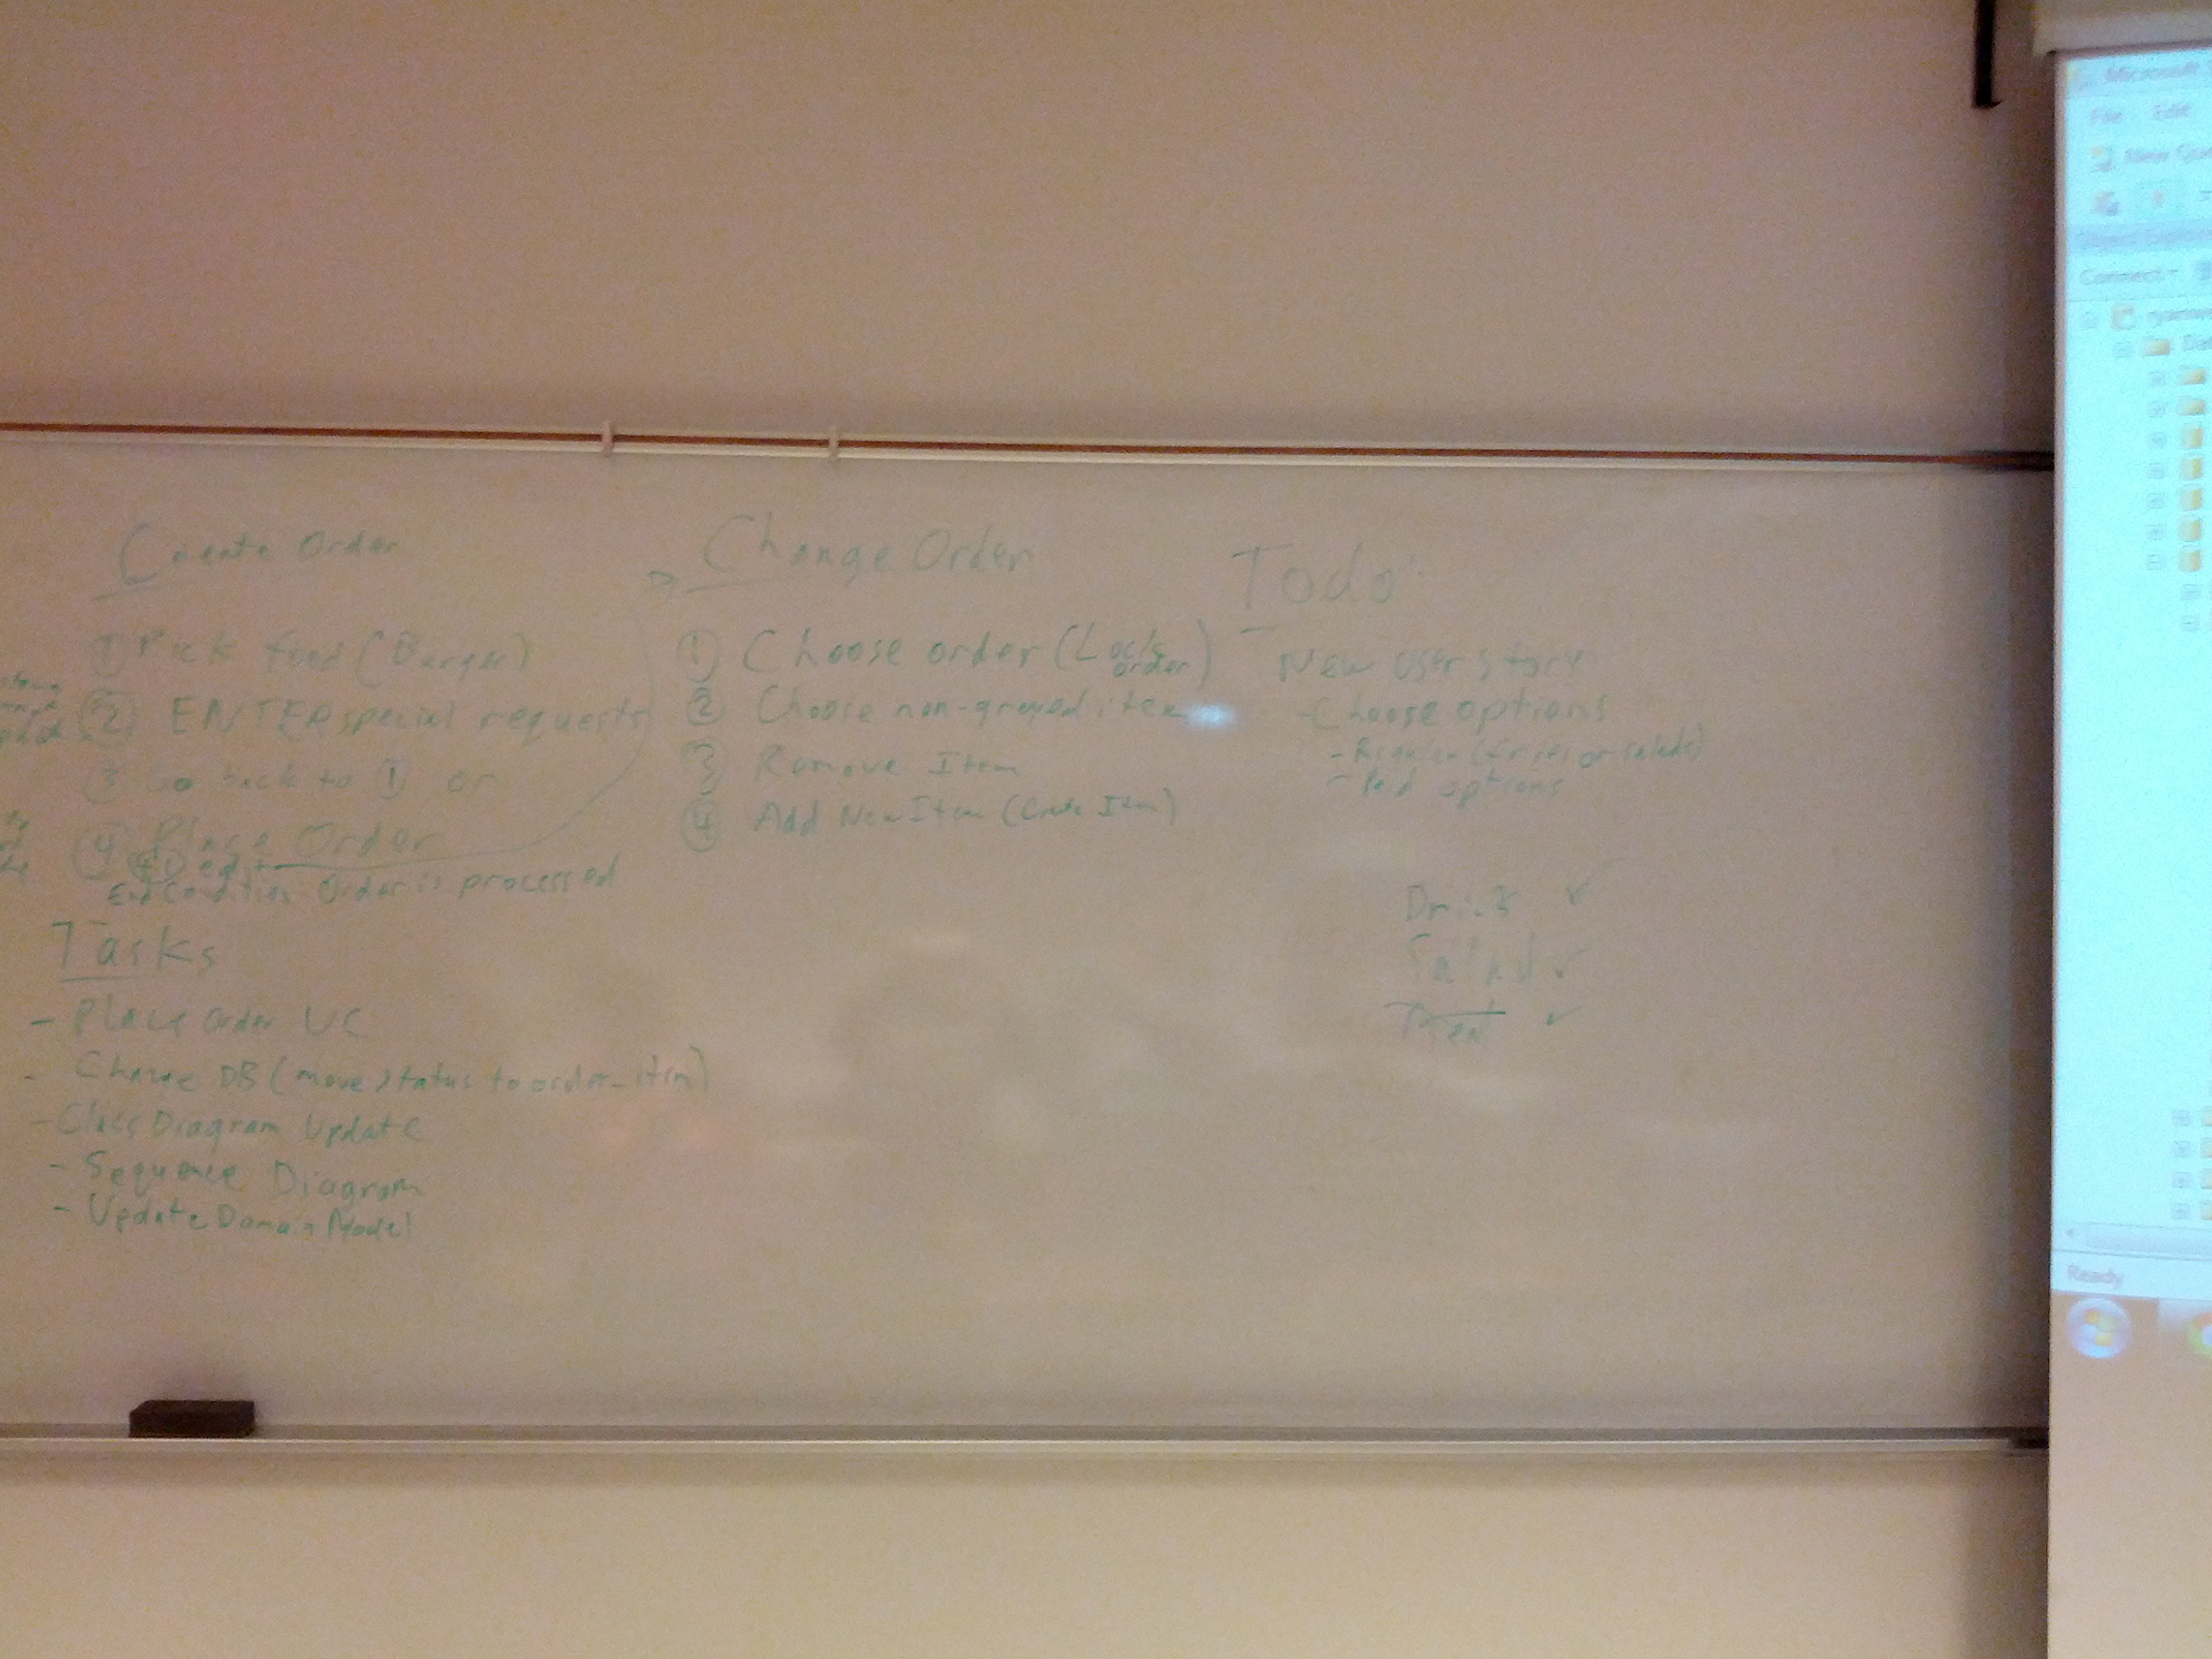 Create Order
① Pick food (Burger)
② ENTER special requests
③ Go back to ① or
④ Place Order
edit
End Condition: Order is processed
Tasks
- Place Order UC
- Change DB (move status to order_item)
- Class Diagram Update
- Sequence Diagram
- Update Domain Model
Change Order
① Choose order (Locks order)
② Choose non-greyed item
③ Remove Item
④ Add New Item (Create Item)
Todo:
- New User Story
- Choose options
- Regular (fries or salads)
- Paid options
Drink ✓
Salad ✓
✓
Microsoft
File Edit
New
Object Explorer
Connect
Ready